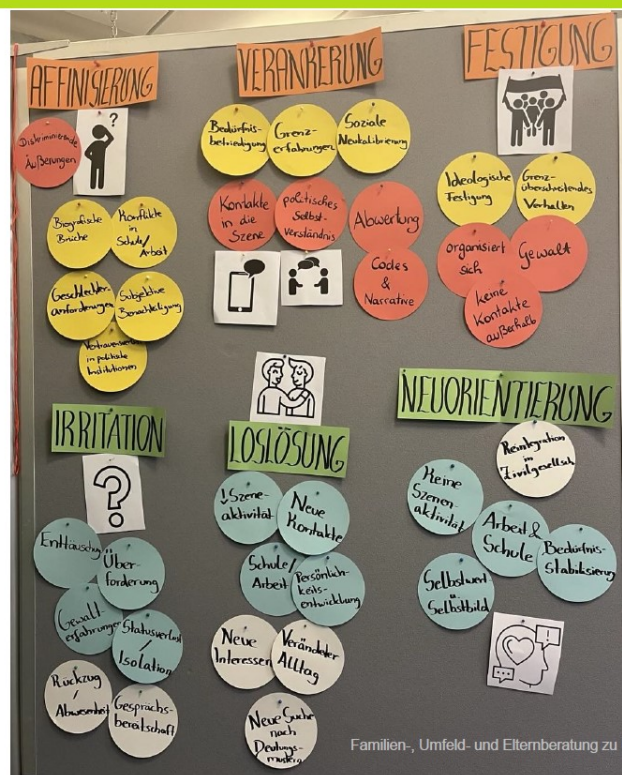 AFFINISIERUNG
?
Diskriminierende
Äußerungen
Biografische
Brüche
Konflikte
in
Schule/
Arbeit
Geschlechter-
anforderungen
Subjektive
Benachteiligung
in politische
Institutionen
VERANKERUNG
Bedürfnis-
befriedigung
Grenz-
erfahrungen
Soziale
Neukalibrierung
Kontakte
in die
Szene
politisches
Selbst-
verständnis
Abwertung
Codes
&
Narrative
FESTIGUNG
Ideologische
Festigung
Grenz-
überschreitendes
Verhalten
organisiert
sich
Gewalt
keine
Kontakte
außerhalb
IRRITATION
?
Enttäuschung
Über-
forderung
Gewalt-
erfahrungen
Statusverlust
/
Isolation
Rückzug
/
Abwesenheit
Gesprächs-
bereitschaft
LOSLÖSUNG
Szene-
aktivität
Neue
Kontakte
Schule/
Arbeit
Persönlich-
keits-
entwicklung
Neue
Interessen
Veränderter
Alltag
Neue Suche
nach
Deutungs-
mustern
NEUORIENTIERUNG
Reintegration
in
Zivilgesellsch
Keine
Szenen-
aktivität
Arbeit &
Schule
Bedürfnis-
stabilisierung
Selbstwert
Selbstbild
!
Familien-, Umfeld- und Elternberatung zu